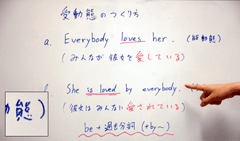 受動態のつくり方
a. Everybody loves her. (能動態)
(みんなが彼女を愛している)
She is loved by everybody.
(彼女はみんなに愛されている)
be + 過去分詞 (+by〜)
態)